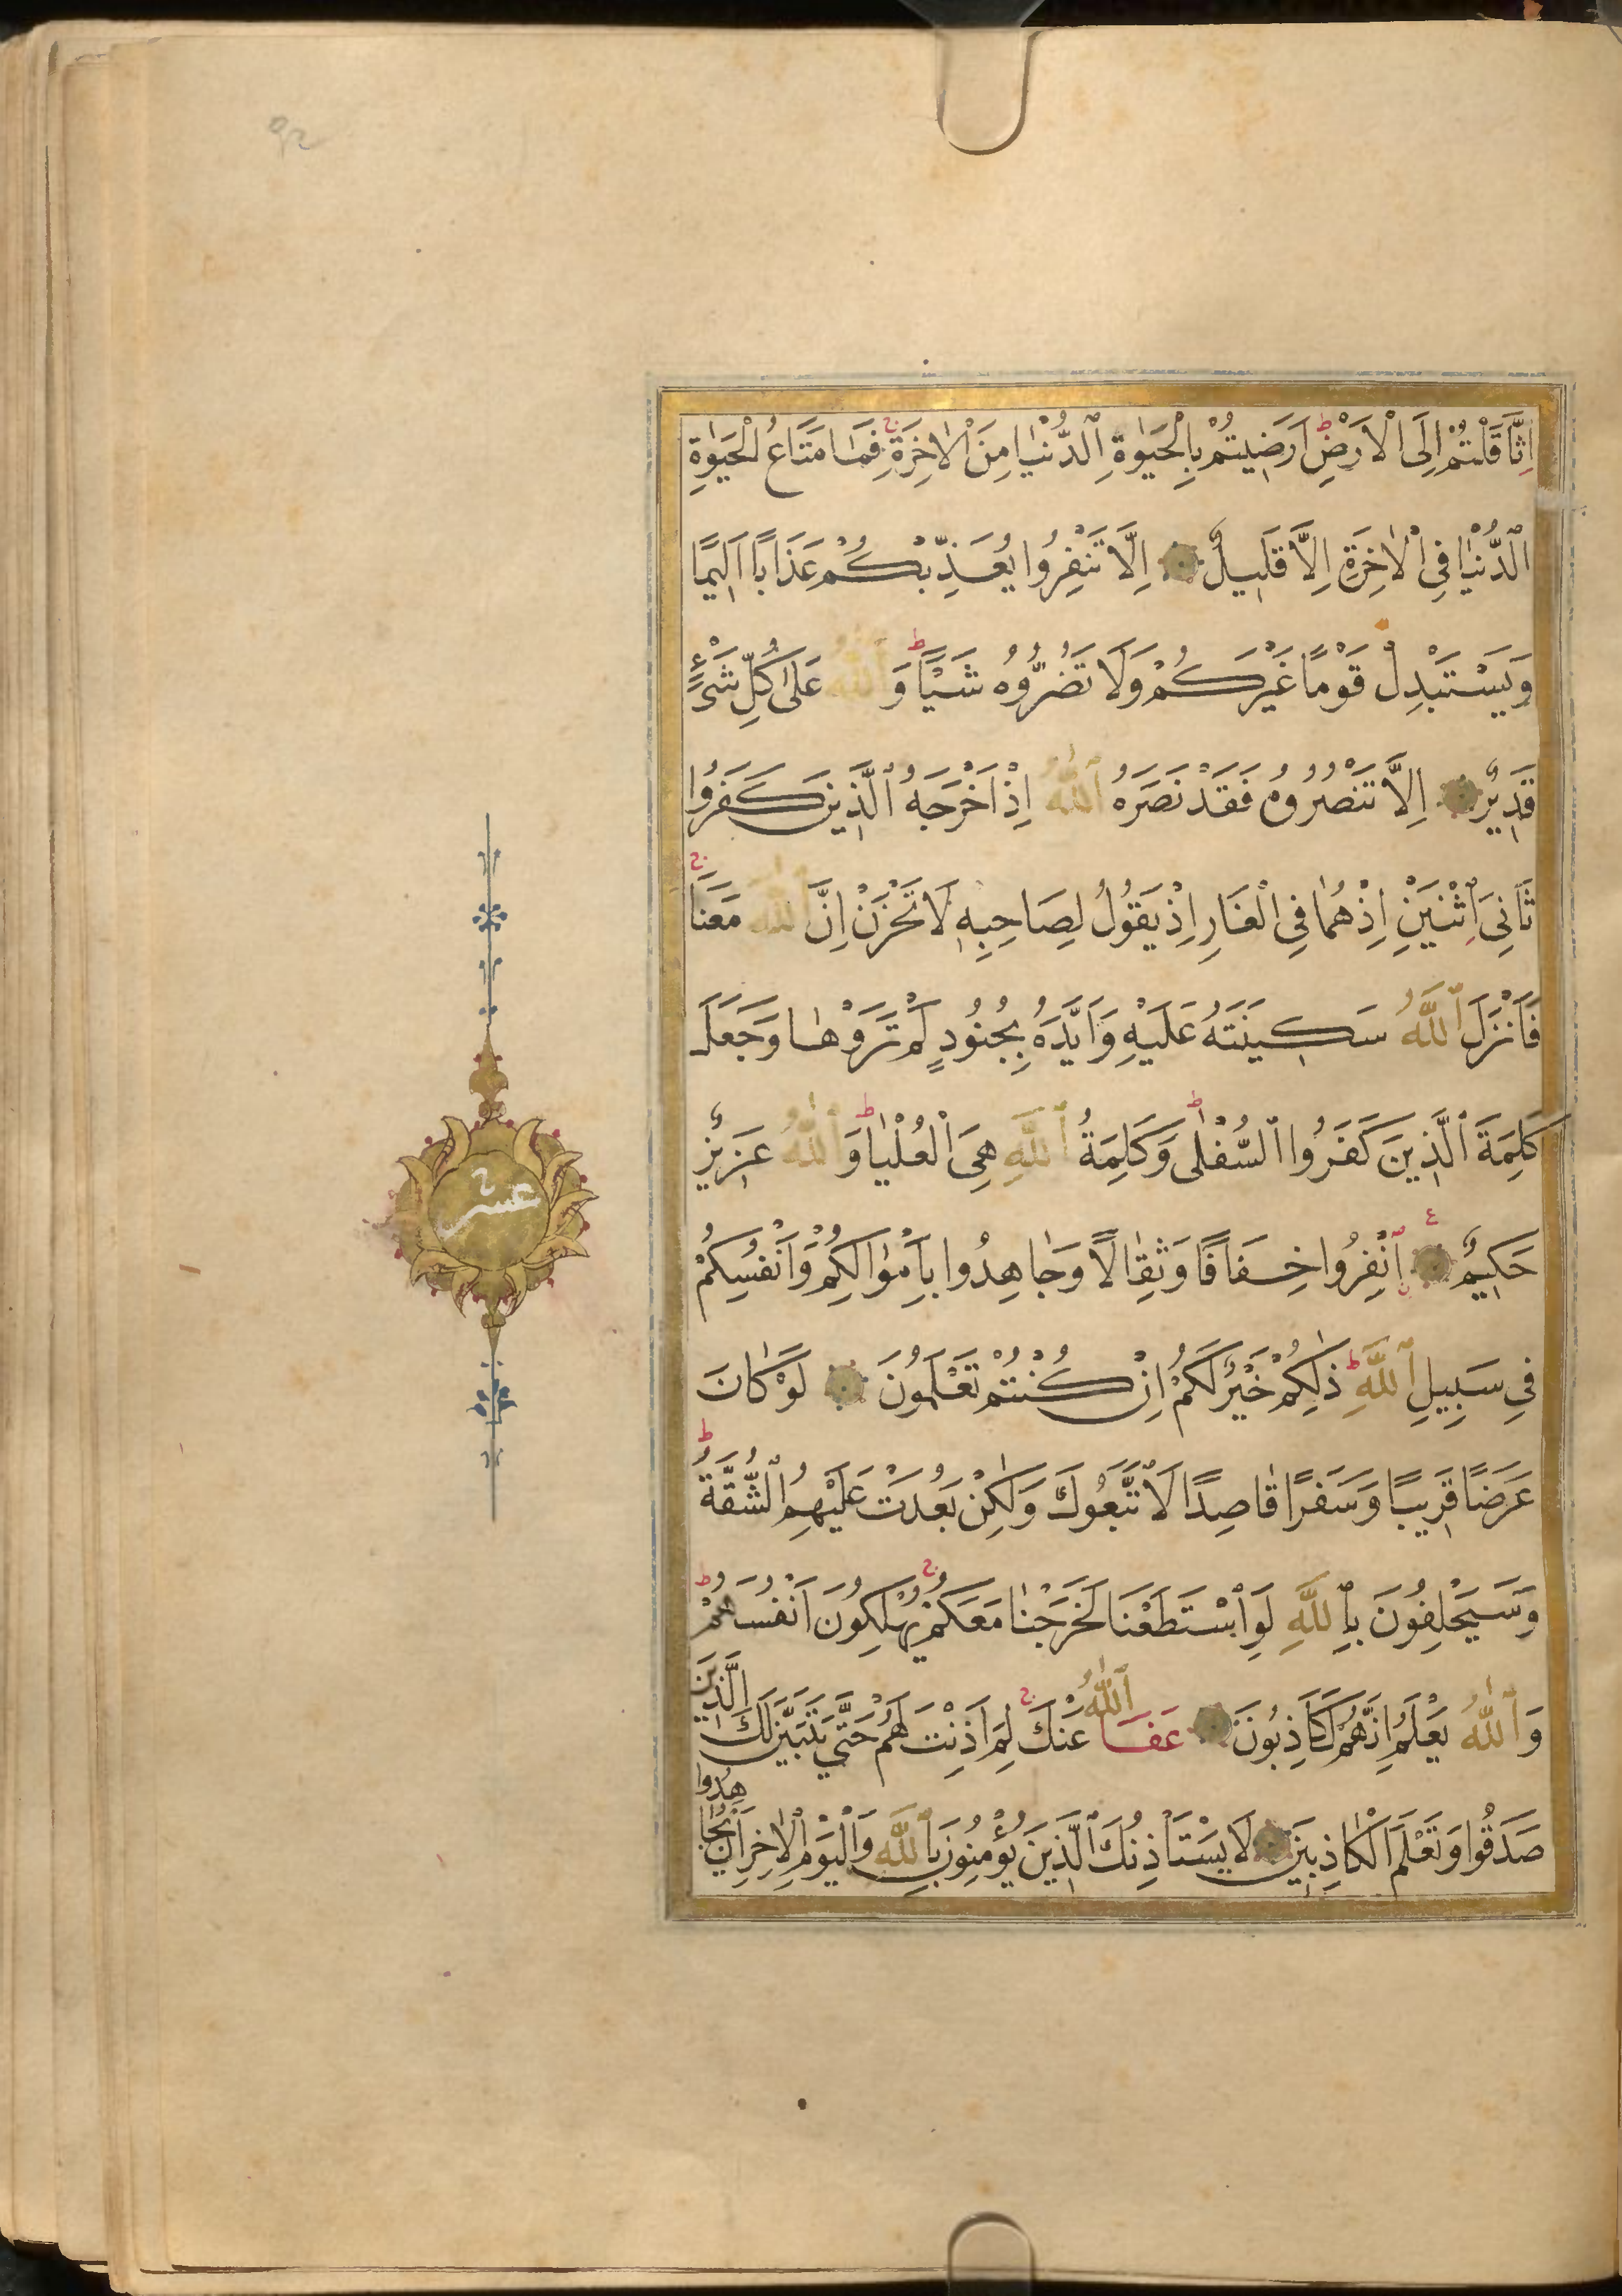 اِثَّاقَلْتُمْ اِلَى الْاَرْضِ ط اَرَضِيتُمْ بِالْحَيٰوةِ الدُّنْيَا مِنَ الْاٰخِرَةِ ج فَمَا مَتَاعُ الْحَيٰوةِ
الدُّنْيَا فِى الْاٰخِرَةِ اِلَّا قَلِيلٌ اِلَّا تَنْفِرُوا يُعَذِّبْكُمْ عَذَابًا اَلِيمًا
وَيَسْتَبْدِلْ قَوْمًا غَيْرَكُمْ وَلَا تَضُرُّوهُ شَيْـًٔا ط وَاللّٰهُ عَلٰى كُلِّ شَىْءٍ
قَدِيرٌ اِلَّا تَنْصُرُوهُ فَقَدْ نَصَرَهُ اللّٰهُ اِذْ اَخْرَجَهُ الَّذِينَ كَفَرُوا
ثَانِىَ اثْنَيْنِ اِذْ هُمَا فِى الْغَارِ اِذْ يَقُولُ لِصَاحِبِهِ لَا تَحْزَنْ اِنَّ اللّٰهَ مَعَنَا ج
فَاَنْزَلَ اللّٰهُ سَكِينَتَهُ عَلَيْهِ وَاَيَّدَهُ بِجُنُودٍ لَمْ تَرَوْهَا وَجَعَلَ
كَلِمَةَ الَّذِينَ كَفَرُوا السُّفْلٰى ط وَكَلِمَةُ اللّٰهِ هِىَ الْعُلْيَا ط وَاللّٰهُ عَزِيزٌ
حَكِيمٌ ع اِنْفِرُوا خِفَافًا وَثِقَالًا وَجَاهِدُوا بِاَمْوَالِكُمْ وَاَنْفُسِكُمْ
فِى سَبِيلِ اللّٰهِ ط ذٰلِكُمْ خَيْرٌ لَكُمْ اِنْ كُنْتُمْ تَعْلَمُونَ لَوْ كَانَ
عَرَضًا قَرِيبًا وَسَفَرًا قَاصِدًا لَاتَّبَعُوكَ وَلٰكِنْ بَعُدَتْ عَلَيْهِمُ الشُّقَّةُ ط
وَسَيَحْلِفُونَ بِاللّٰهِ لَوِ اسْتَطَعْنَا لَخَرَجْنَا مَعَكُمْ ج يُهْلِكُونَ اَنْفُسَهُمْ ط
وَاللّٰهُ يَعْلَمُ اِنَّهُمْ لَكَاذِبُونَ عَفَا اللّٰهُ عَنْكَ ج لِمَ اَذِنْتَ لَهُمْ حَتّٰى يَتَبَيَّنَ لَكَ الَّذِينَ
صَدَقُوا وَتَعْلَمَ الْكَاذِبِينَ لَا يَسْتَاْذِنُكَ الَّذِينَ يُؤْمِنُونَ بِاللّٰهِ وَالْيَوْمِ الْاٰخِرِ اَنْ يُجَاهِدُوا
عشر